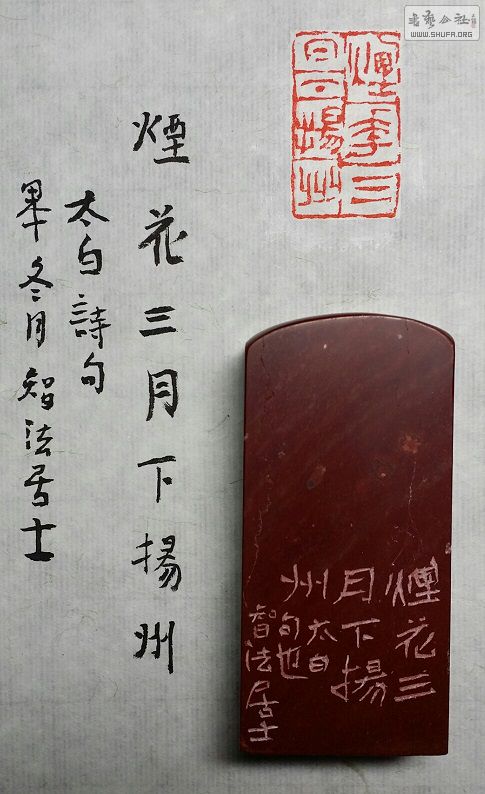 書藝公社
WWW.SHUFA.ORG
煙三
月下揚州
煙花三月下揚州
太白詩句
冬月智法居士
煙花三
月下揚
州太白
句也
智法居士